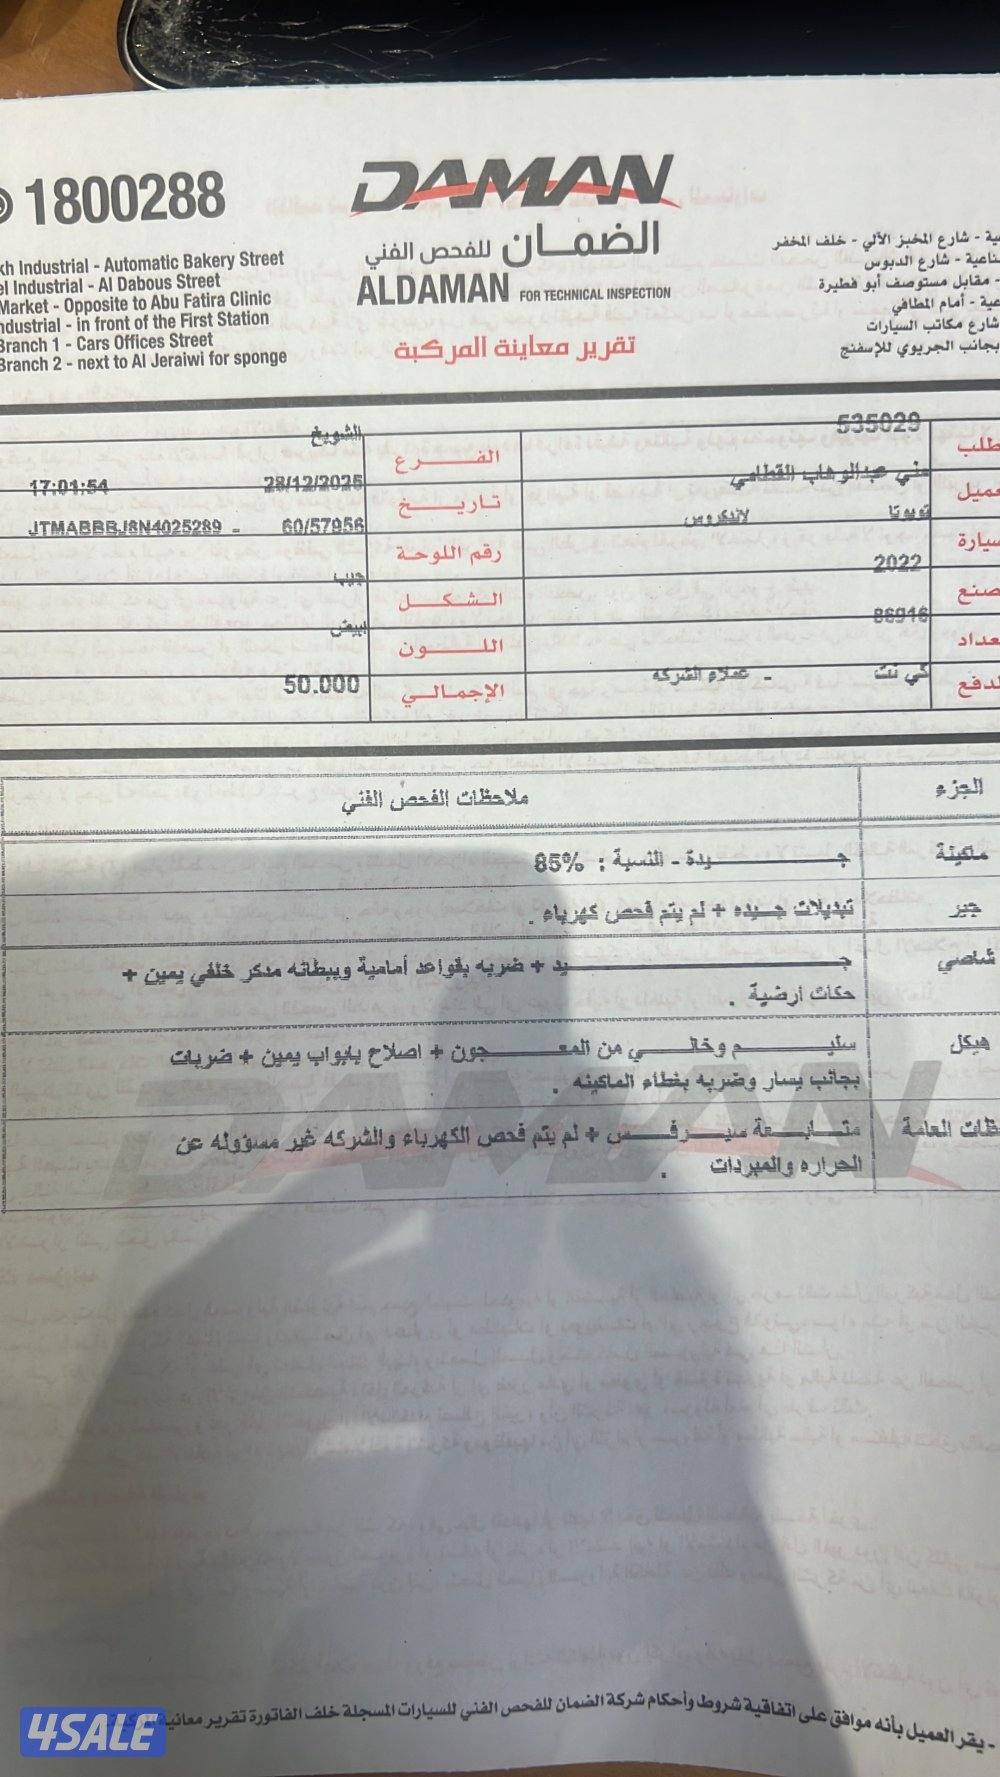 1800288
DAMAN
الضمان للفحص الفني
ALDAMAN FOR TECHNICAL INSPECTION
تقرير معاينة المركبة
kh Industrial - Automatic Bakery Street
el Industrial - Al Dabous Street
Market - Opposite to Abu Fatira Clinic
ndustrial - in front of the First Station
Branch 1 - Cars Offices Street
Branch 2 - next to Al Jeraiwi for sponge
ية - شارع المخبز الآلي - خلف المخفر
ناعية - شارع الدبوس
- مقابل مستوصف أبو فطيرة
عية - أمام المطافي
شارع مكاتب السيارات
بجانب الجريوي للإسفنج
طلب 535029 الفرع الشويخ
عميل عبدالوهاب القطامي تاريخ 28/12/2025 17:01:54
سيارة تويوتا لاندكروس رقم اللوحة 60/57956 - JTMABBBJ8N4025289
صنع 2022 الشكل جيب
عداد 86916 اللون ابيض
لدفع كي نت - عملاء الشركه الإجمالي 50.000
الجزء ملاحظات الفحص الفني
ماكينة جيدة - النسبة : 85%
جير تبديلات جيده + لم يتم فحص كهرباء .
شاصي جيد + ضربه بقواعد أمامية وببطانه مدكر خلفي يمين +
حكات ارضية .
هيكل سليم وخالي من المعجون + اصلاح بابواب يمين + ضربات
بجانب يسار وضربه بغطاء الماكينه .
ظات العامة متابعة سيرفس + لم يتم فحص الكهرباء والشركه غير مسؤوله عن
الحراره والمبردات .
- يقر العميل بأنه موافق على اتفاقية شروط وأحكام شركة الضمان للفحص الفني للسيارات المسجلة خلف الفاتورة تقرير معاينة
4SALE